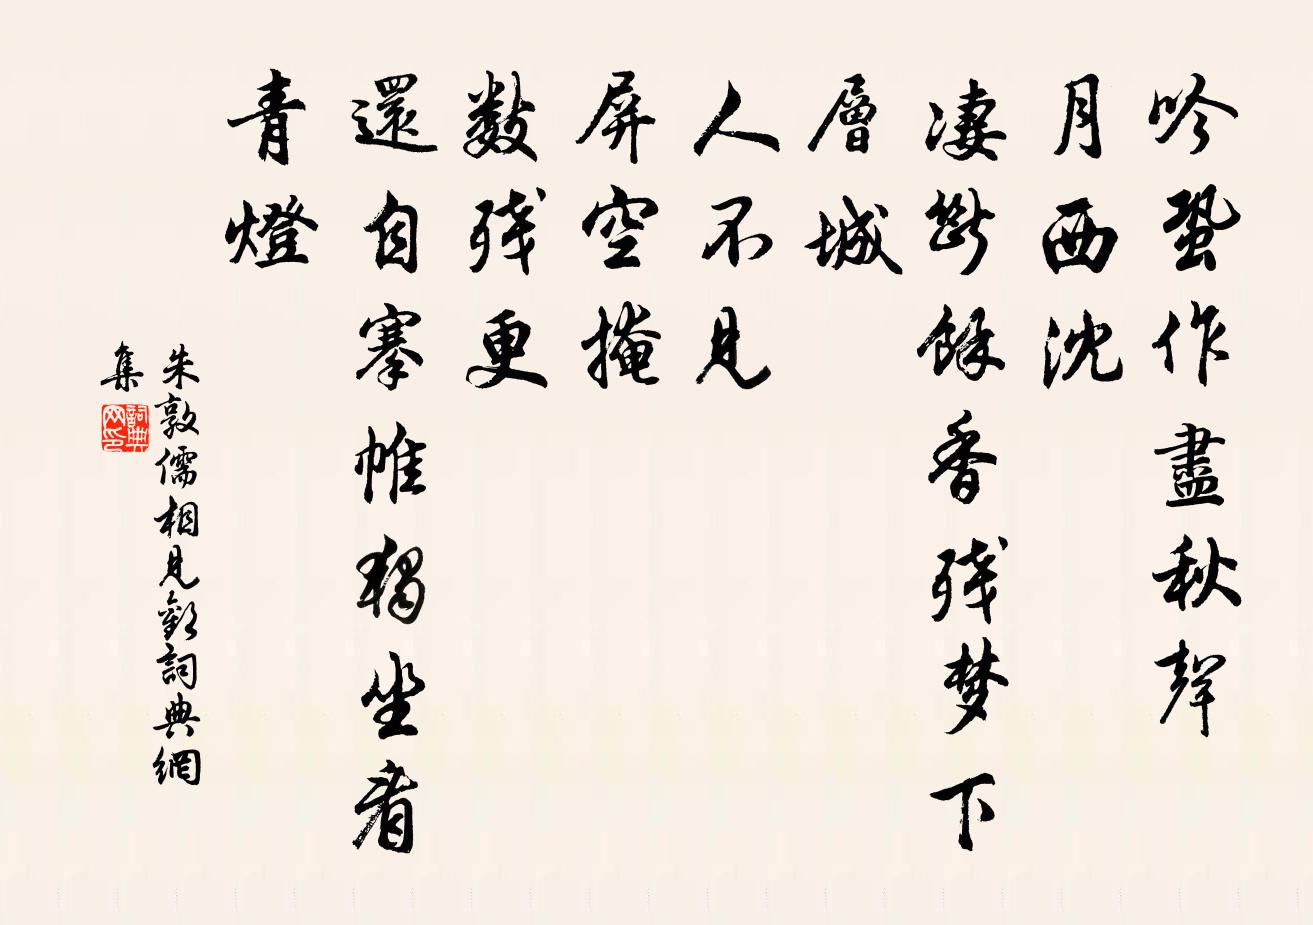 吟蛩作盡秋聲
月西沈
凄斷餘香殘梦下
層城
人不見
屏空掩
數殘更
還自搴帷獨坐看
青燈
朱敦儒相見歡詞典網
集
詞典網印